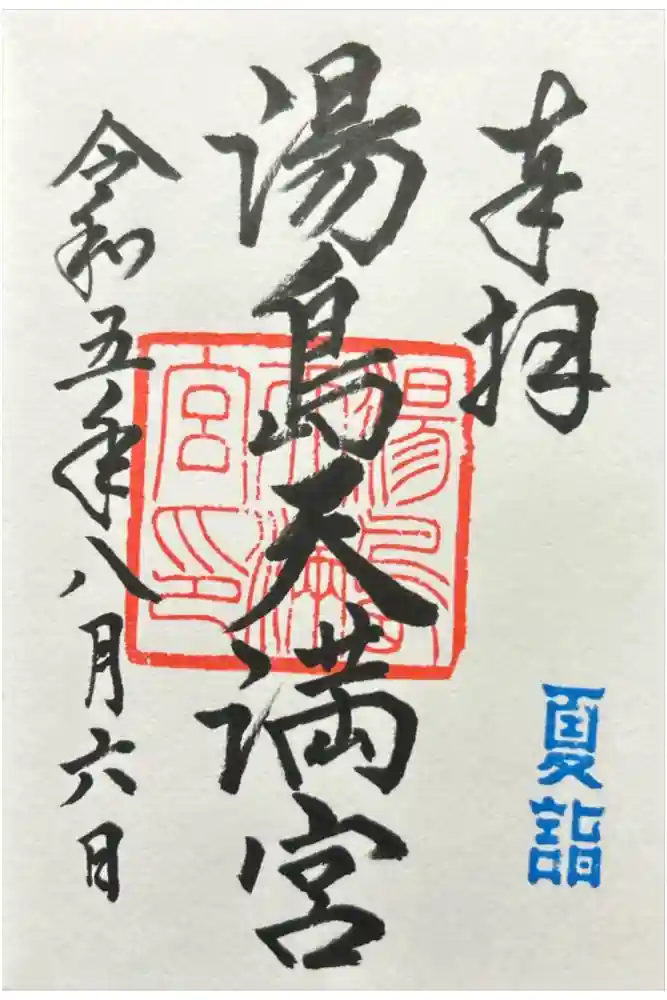 奉拝
夏詣
湯島天満宮
湯島天満宮印
令和五年八月六日